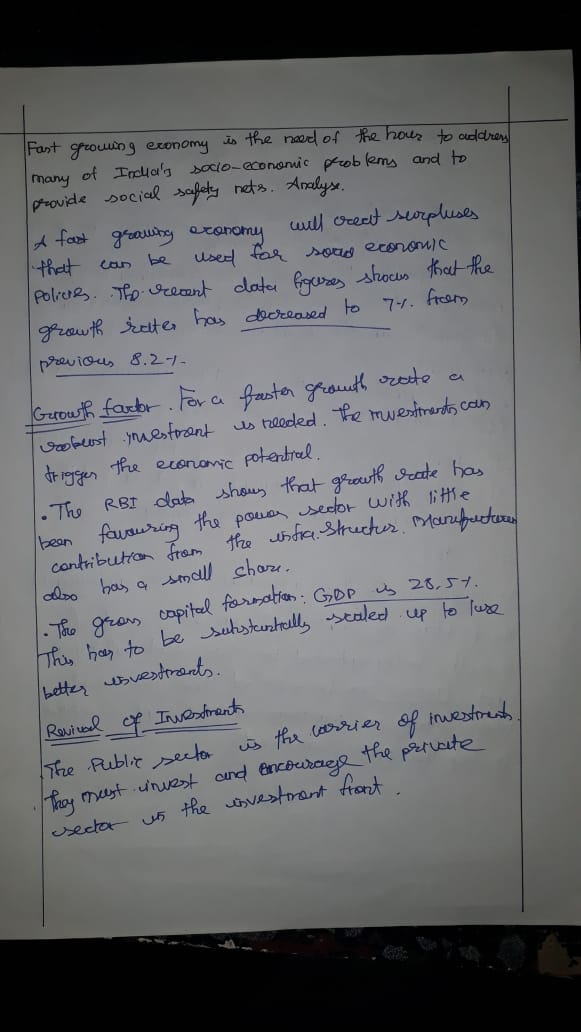 Fast growing economy is the need of the hour to address
many of India's socio-economic problems and to
provide social safety nets. Analyse.
A fast growing economy will creat surpluses
that can be used for socio economic
Policies. The recent data figures shows that the
growth rates has decreased to 7%. from
previous 8.2%.
Growth factor. For a faster growth rate a
robust investment is needed. The investments can
trigger the economic potential.
• The RBI data shows that growth rate has
been favouring the power sector with little
contribution from the infra. structure. Manufactures
also has a small share.
• The gross capital formation: GDP is 28.5%.
This has to be substantially scaled up to lure
better investments.
Revival of Investments
The Public sector is the carrier of investments.
They must invest and encourage the private
sector in the investment front.